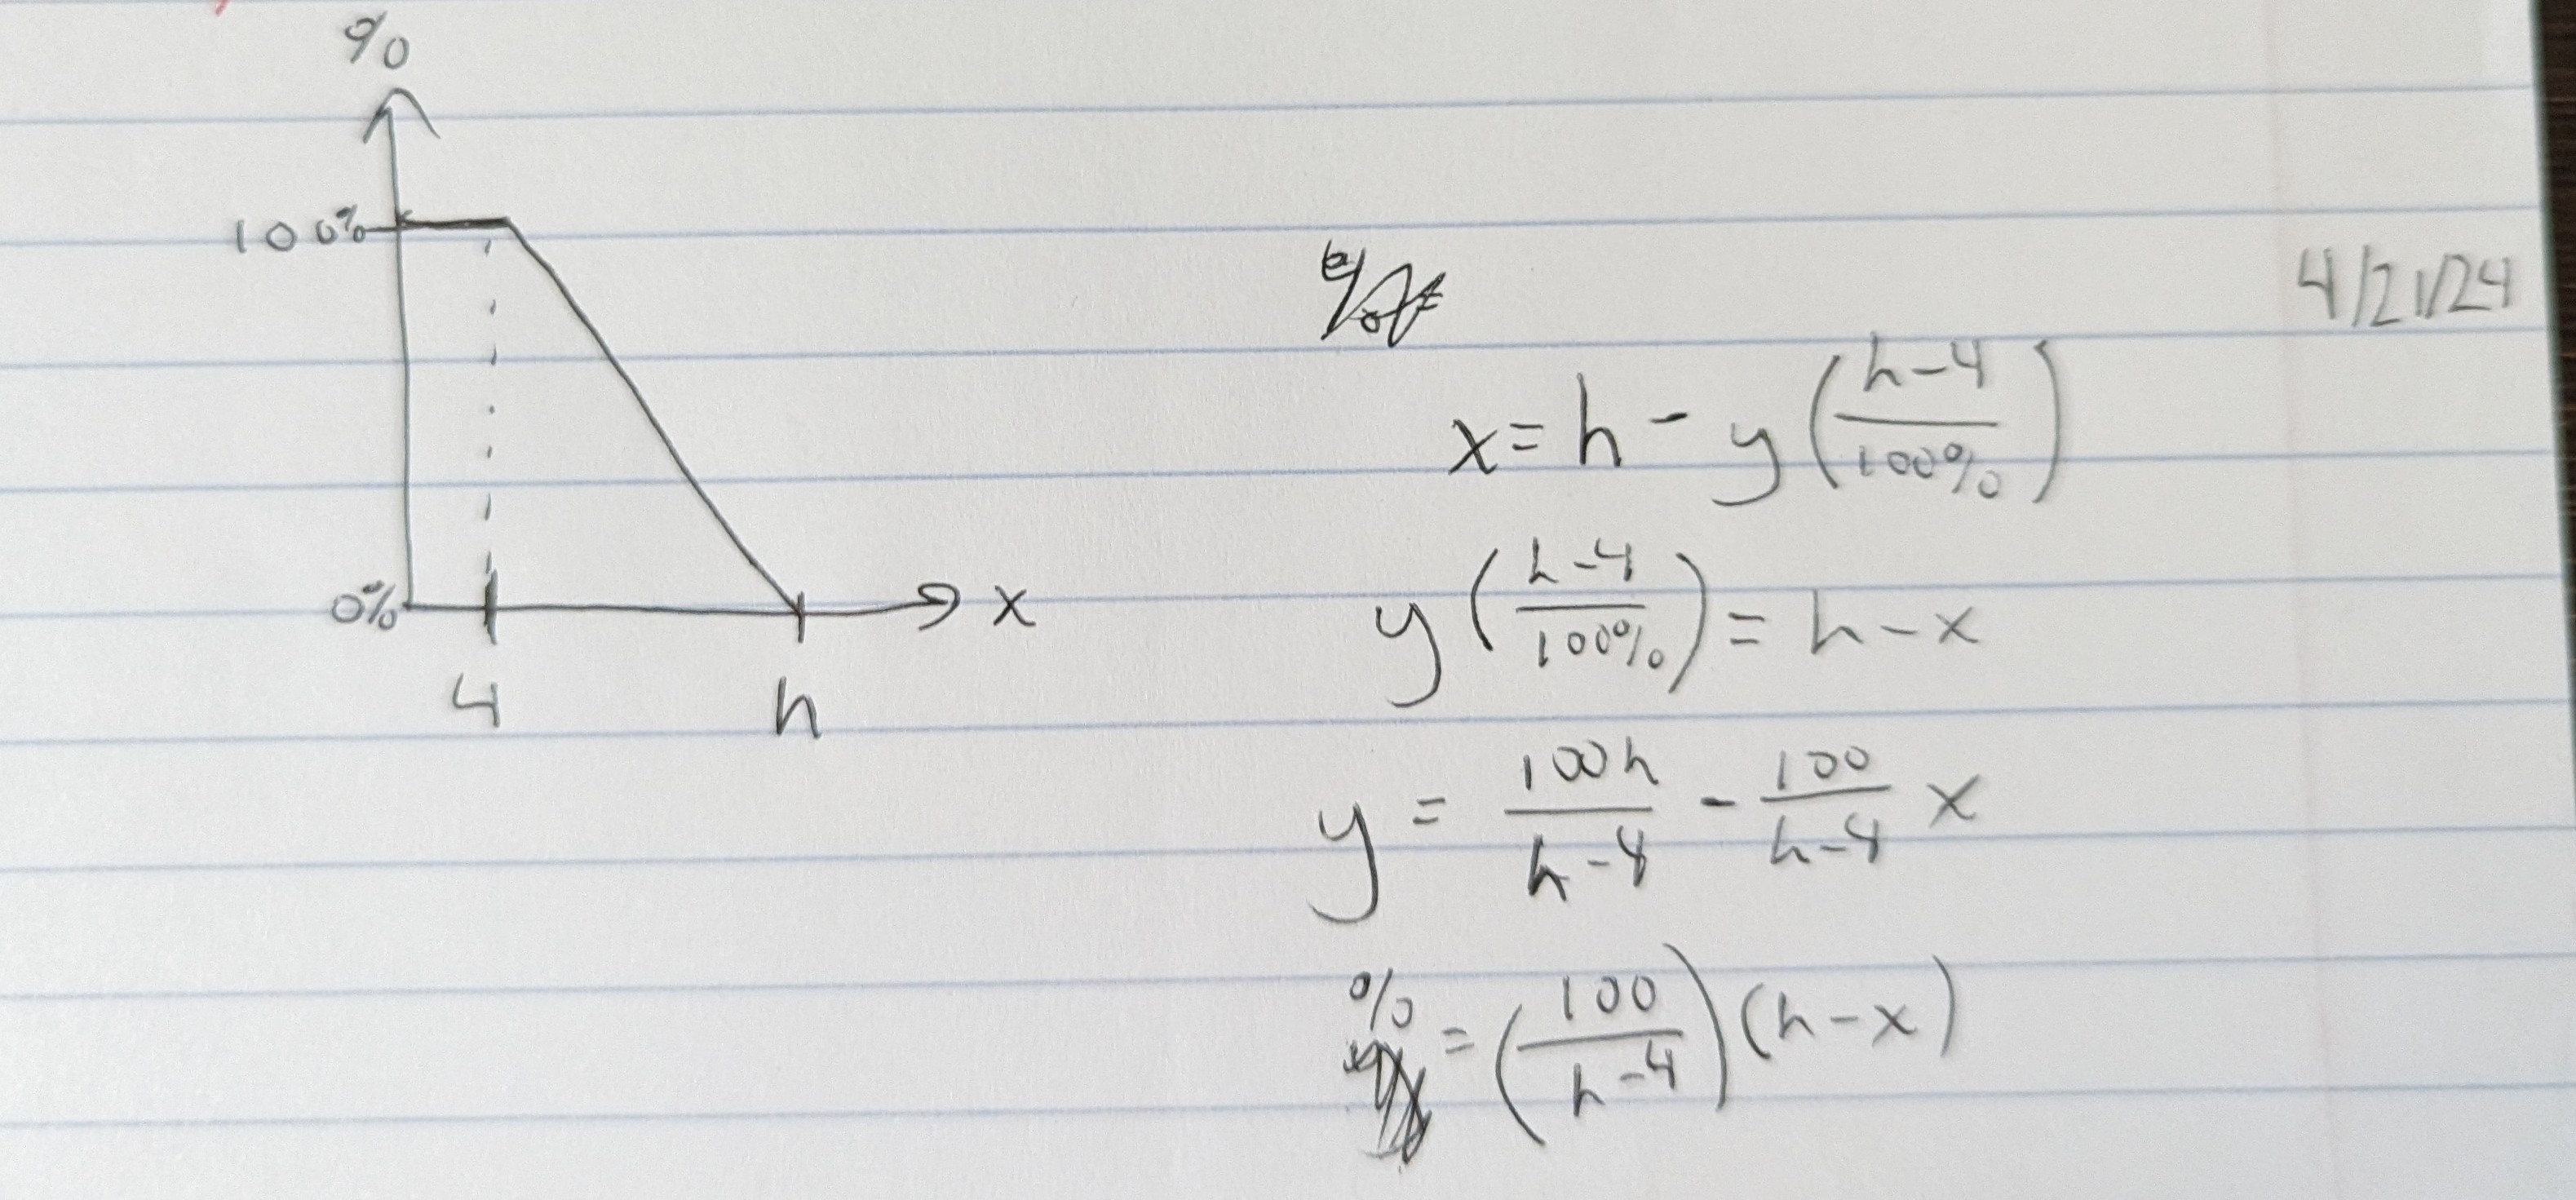 %
100%
0%
x
4
h
4/21/24
x = h - y (h-4 / 100%)
y (h-4 / 100%) = h - x
y = 100h / h-4 - 100 / h-4 x
% = (100 / h-4) (h - x)